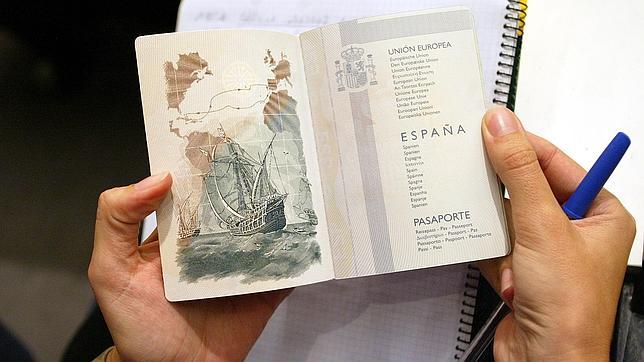 UNIÓN EUROPEA
Europæiske Union
Den Europäiske Union
Union Européenne
Ευρωπαϊκή Ένωση
European Union
An tAontas Eorpach
Unione Europea
Europese Unie
União Europeia
Euroopan Unioni
Europeiska Unionen
ESPAÑA
Spanien
Spanien
Espagne
Ισπανία
Spain
Spáinne
Spagna
Spanje
Espanha
Espanja
Spanien
PASAPORTE
Reisepass - Pas - Passeport
Διαβατήριο - Passport - Pas
Passaporto - Paspoort - Passaporte
Passi - Pass